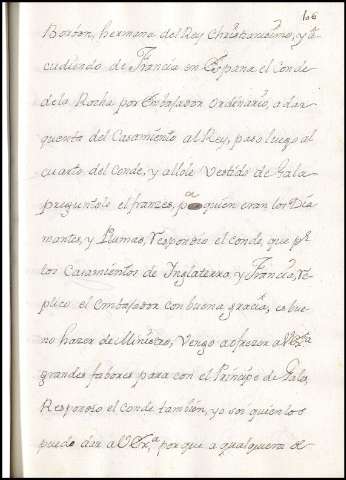 106
Borbon, hermana del Rey Christianissimo, y
cudiendo de Francia en España el Conde
dela Rocha por Embajador ordinario, a dar
quenta del Casamiento al Rey, paso luego al
cuarto del Conde, y allole Vestido de Gala
preguntole el franzes, pa quien eran los Dia
mantes, y Plumas, Respondio el conde, que pª
los Casamientos de Inglaterra y Francia, Re
plico el embajador con buena gracia, es bue
no hazer de Ministro, Vengo a ofrezer a VExª
grandes fabores para con el Principe de Gales,
Respondio el conde tambien, yo soi quien los
puedo dar a VExª, porque a qualquiera de